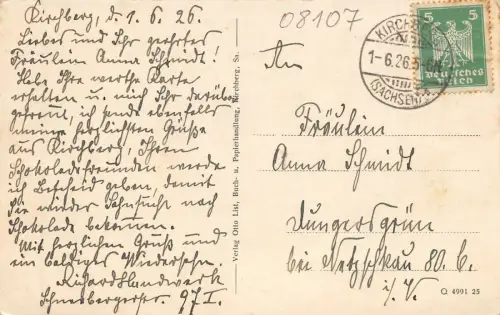 Kirchberg, d. 1. 6. 26.
Liebes und sehr geehrtes
Fräulein Anna Schmidt!
Habe Ihre werthe Karte
erhalten u. mich sehr darüber
gefreut, ich sende ebenfalls
meine herzlichsten Grüße
aus Kirchberg, Ihrem
Schokoladefreunden werde
ich Bescheid geben, damit
Sie wieder Sehnsucht nach
Schokolade bekommen.
Mit herzlichen Gruß und
ein baldiges Wiedersehn.
Richard Handwerk
Schneebergerstr. 97 I.
Verlag Otto List, Buch- u. Papierhandlung, Kirchberg, Sa.
08107
KIRCHBERG
1-6.26.5-6
(SACHSEN)
5 5
Deutsches
Reich
An
Fräulein
Anna Schmidt
Dungersgrün
bei Netzschkau 80. b.
i/V.
Q 4991 25